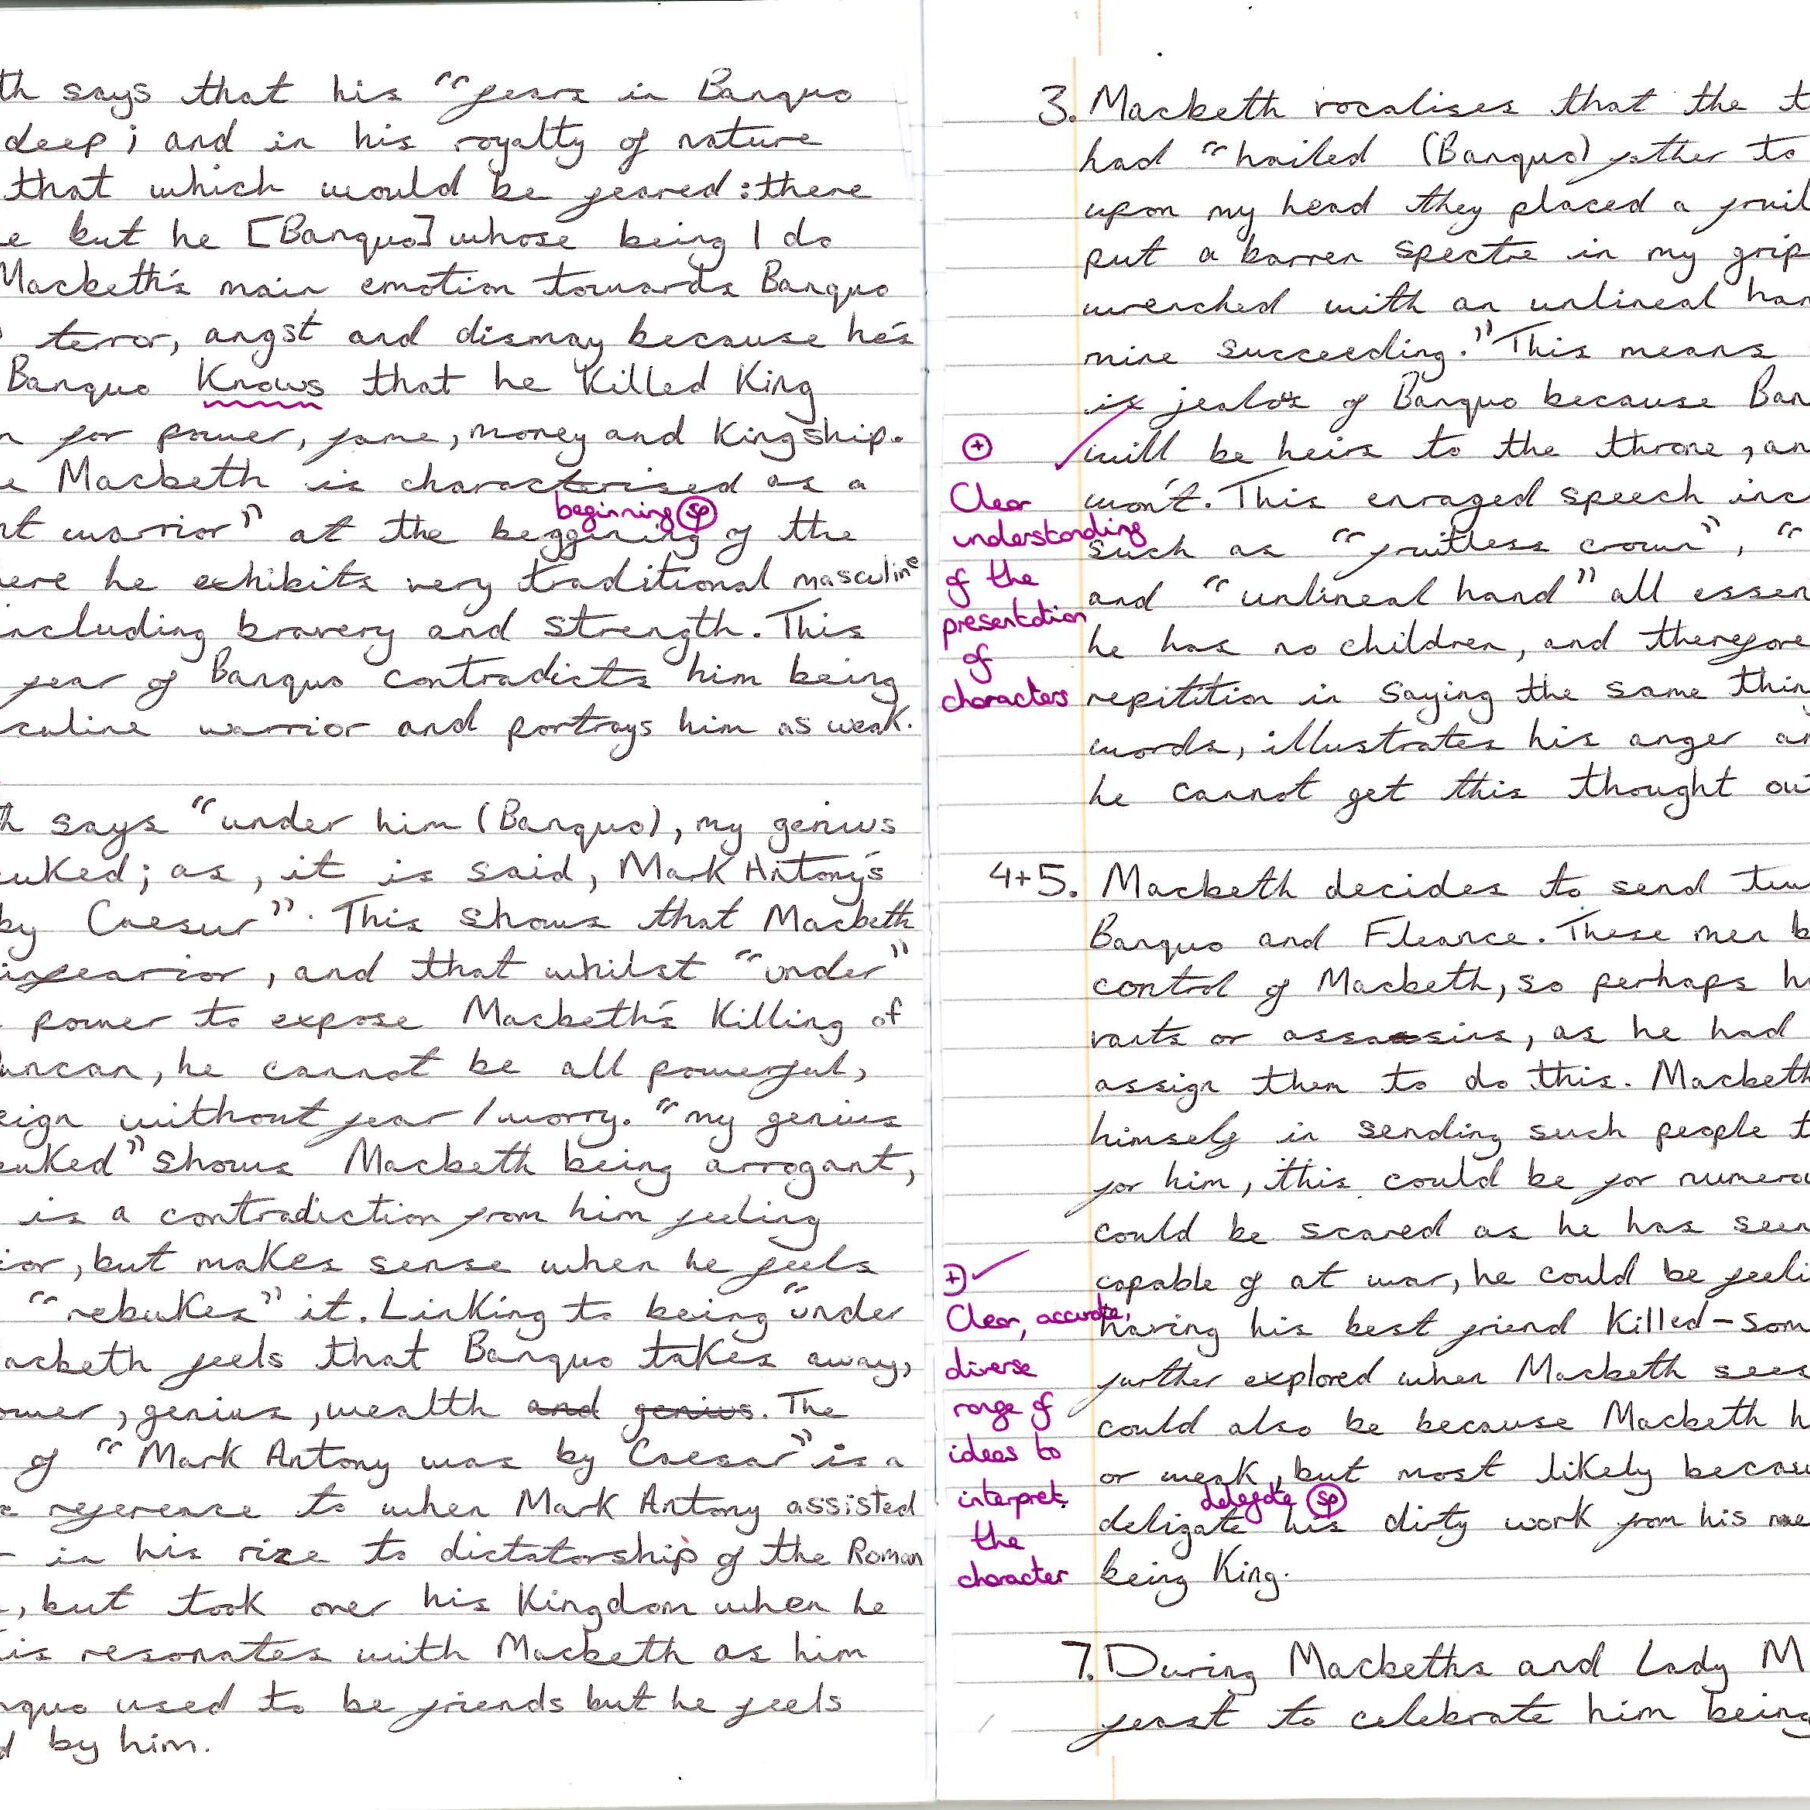 th says that his "fears in Banquo
deep; and in his royalty of nature
that which would be feared: there
e but he [Banquo] whose being I do
Macbeth's main emotion towards Banquo
terror, angst and dismay because he's
Banquo knows that he killed King
n for power, fame, money and Kingship.
e Macbeth is characterised as a
beginning sp
nt warrior" at the beggining of the
ere he exhibits very traditional masculine
including bravery and strength. This
fear of Banquo contradicts him being
culine warrior and portrays him as weak.
th says "under him (Banquo), my genius
uked; as, it is said, Mark Antony's
by Caesur". This shows that Macbeth
infearior, and that whilst "under"
power to expose Macbeth's killing of
uncan, he cannot be all powerful,
eign without fear/worry. "my genius
euked" shows Macbeth being arrogant,
is a contradiction from him feeling
ior, but makes sense when he feels
"rebukes" it. Linking to being "under
acbeth feels that Banquo takes away,
ower, genius, wealth and genius. The
of "Mark Antony was by Caesar" is a
c reference to when Mark Antony assisted
r in his rize to dictatorship of the Roman
, but took over his Kingdom when he
is resonates with Macbeth as him
nquo used to be friends but he feels
d by him.
3. Macbeth vocalises that the t
had "hailed (Banquo) father to
upon my head they placed a fruit
put a barren spectre in my grip
wrenched with an unlineal han
mine succeeding." This means
is jealos of Banquo because Ban
will be heirs to the throne, an
won't. This enraged speech inc
such as "fruitless crown", "
and "unlineal hand" all essen
he has no children, and therefore
repitition in saying the same thing
words, illustrates his anger an
he cannot get this thought ou
+
Clear
understanding
of the
presentation
of
characters
4+5. Macbeth decides to send tw
Banquo and Fleance. These men b
control of Macbeth, so perhaps h
vants or assassins, as he had
assign them to do this. Macbeth
himself in sending such people t
for him, this could be for numero
could be scared as he has seen
capable of at war, he could be feeli
having his best friend killed-som
further explored when Macbeth sees
could also be because Macbeth h
or weak, but most likely becau
delegate sp
deligate his dirty work from his
being King.
+
Clear, accurate,
diverse
range of
ideas to
interpret
the
character
7. During Macbeths and Lady M
feast to celebrate him being